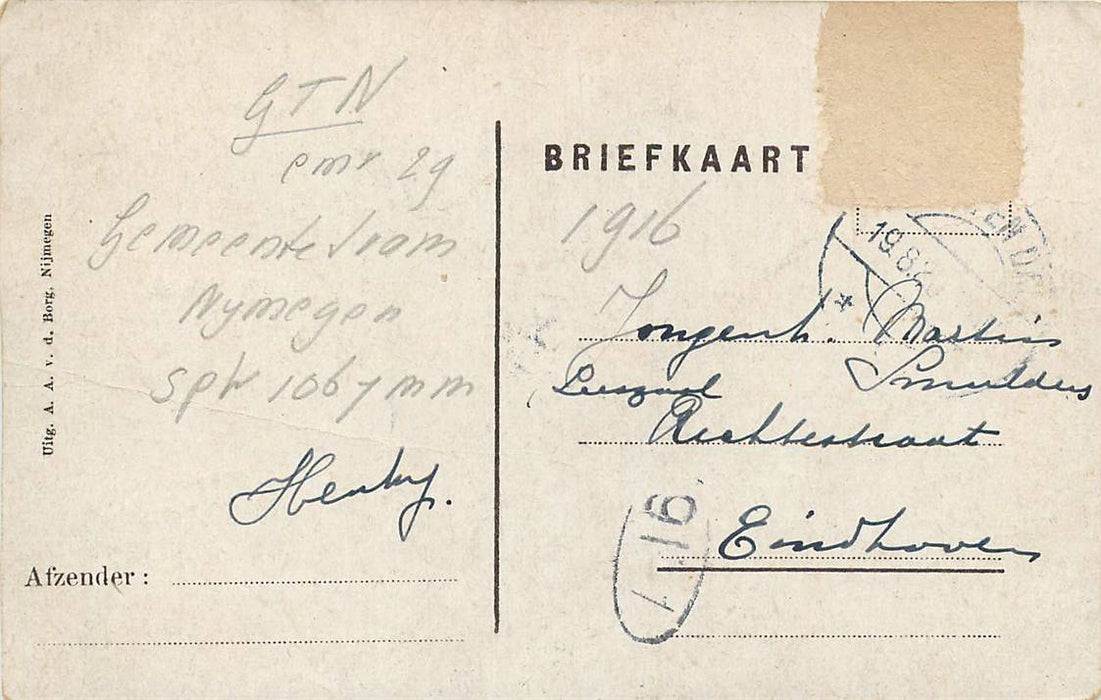 GTN
emr 29
Gemeente tram
Nymegen
spw 1067 mm
Henky.
Afzender :
Uitg. A. A. v. d. Borg, Nijmegen
BRIEFKAART
1916
19.8.
Jongenh. Martin
Smulders
Rechtestraat
Eindhoven
16